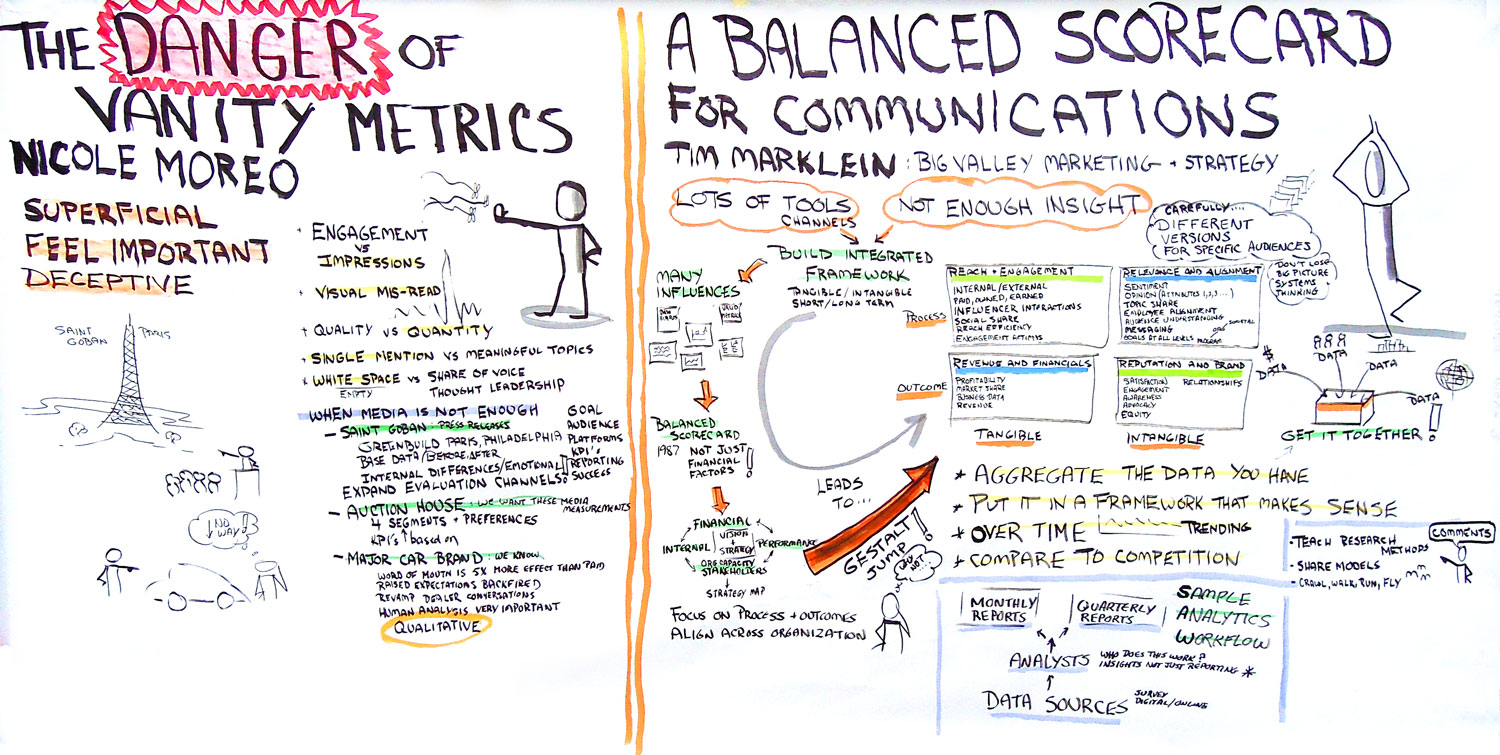 THE DANGER OF
VANITY METRICS
NICOLE MOREO
SUPERFICIAL
FEEL IMPORTANT
DECEPTIVE
SAINT GOBAN
PARIS
+ ENGAGEMENT
VS
IMPRESSIONS
+ VISUAL MIS-READ
+ QUALITY VS QUANTITY
+ SINGLE MENTION VS MEANINGFUL TOPICS
+ WHITE SPACE VS SHARE OF VOICE
EMPTY
THOUGHT LEADERSHIP
WHEN MEDIA IS NOT ENOUGH
- SAINT GOBAN: PRESS RELEASES
GREENBUILD PARIS, PHILADELPHIA
BASE DATA/BEFORE/AFTER
INTERNAL DIFFERENCES/EMOTIONAL!!
EXPAND EVALUATION CHANNELS:
GOAL
AUDIENCE
PLATFORMS
KPI's
REPORTING
SUCCESS
- AUCTION HOUSE: WE WANT THESE MEDIA
MEASUREMENTS
4 SEGMENTS + PREFERENCES
KPI's based on
- MAJOR CAR BRAND: WE KNOW
WORD OF MOUTH IS 5X MORE EFFECT THAN PAID
RAISED EXPECTATIONS BACKFIRED
REVAMP DEALER CONVERSATIONS
HUMAN ANALYSIS VERY IMPORTANT
QUALITATIVE
NO
WAY!
A BALANCED SCORECARD
FOR COMMUNICATIONS
TIM MARKLEIN: BIG VALLEY MARKETING + STRATEGY
LOTS OF TOOLS
CHANNELS
NOT ENOUGH INSIGHT
CAREFULLY....
DIFFERENT
VERSIONS
FOR SPECIFIC AUDIENCES
DON'T LOSE
BIG PICTURE
SYSTEMS
THINKING
BUILD INTEGRATED
FRAMEWORK
TANGIBLE/INTANGIBLE
SHORT/LONG TERM
MANY
INFLUENCES
BALANCED
SCORECARD
1987 NOT JUST
FINANCIAL
FACTORS!
FINANCIAL
INTERNAL
VISION
+
STRATEGY
PERFORMANCE
ORG CAPACITY
STAKEHOLDERS
STRATEGY MAP
FOCUS ON PROCESS + OUTCOMES
ALIGN ACROSS ORGANIZATION
LEADS
TO...
GESTALT
JUMP!
WHY
NOT?
PROCESS
OUTCOME
REACH + ENGAGEMENT
INTERNAL/EXTERNAL
PAID, OWNED, EARNED
INFLUENCER INTERACTIONS
SOCIAL SHARE
REACH EFFICIENCY
ENGAGEMENT ACTIONS
RELEVANCE AND ALIGNMENT
SENTIMENT
OPINION (ATTRIBUTES 1,2,3...)
TOPIC SHARE
EMPLOYEE ALIGNMENT
AUDIENCE UNDERSTANDING
MESSAGING
GOALS AT ALL LEVELS
ORG
SOCIETAL
PROGRAM
REVENUE AND FINANCIALS
PROFITABILITY
MARKET SHARE
BUSINESS DATA
REVENUE
REPUTATION AND BRAND
SATISFACTION
RELATIONSHIPS
ENGAGEMENT
AWARENESS
ADVOCACY
EQUITY
TANGIBLE
INTANGIBLE
$
DATA
DATA
DATA
DATA
GET IT TOGETHER!
* AGGREGATE THE DATA YOU HAVE
* PUT IT IN A FRAMEWORK THAT MAKES SENSE
* OVER TIME
TRENDING
* COMPARE TO COMPETITION
COMMENTS
• TEACH RESEARCH
METHODS
• SHARE MODELS
• CRAWL, WALK, RUN, FLY
MONTHLY
REPORTS
QUARTERLY
REPORTS
SAMPLE
ANALYTICS
WORKFLOW
ANALYSTS
WHO DOES THIS WORK?
INSIGHTS NOT JUST REPORTING *
DATA SOURCES
SURVEY
DIGITAL/ONLINE